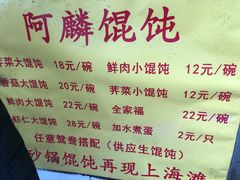 阿麟馄饨
荠菜大馄饨 18元/碗 鲜肉小馄饨 12元/碗
香菇大馄饨 20元/碗 荠菜小馄饨 12元/碗
鲜肉大馄饨 22元/碗 全家福 22元/碗
虾仁大馄饨 28元/碗 加水煮蛋 2元/只
任意鸳鸯搭配(供应生馄饨)
砂锅馄饨再现上海滩